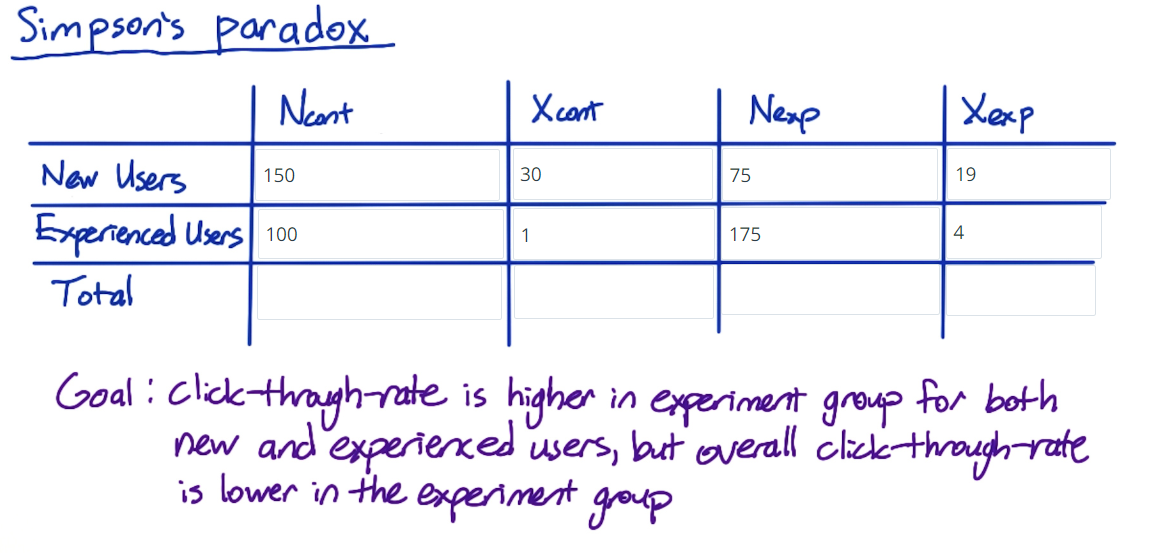 Simpson's paradox
Ncont Xcont Nexp Xexp
New Users 150 30 75 19
Experienced Users 100 1 175 4
Total
Goal: click-through-rate is higher in experiment group for both
new and experienced users, but overall click-through-rate
is lower in the experiment group